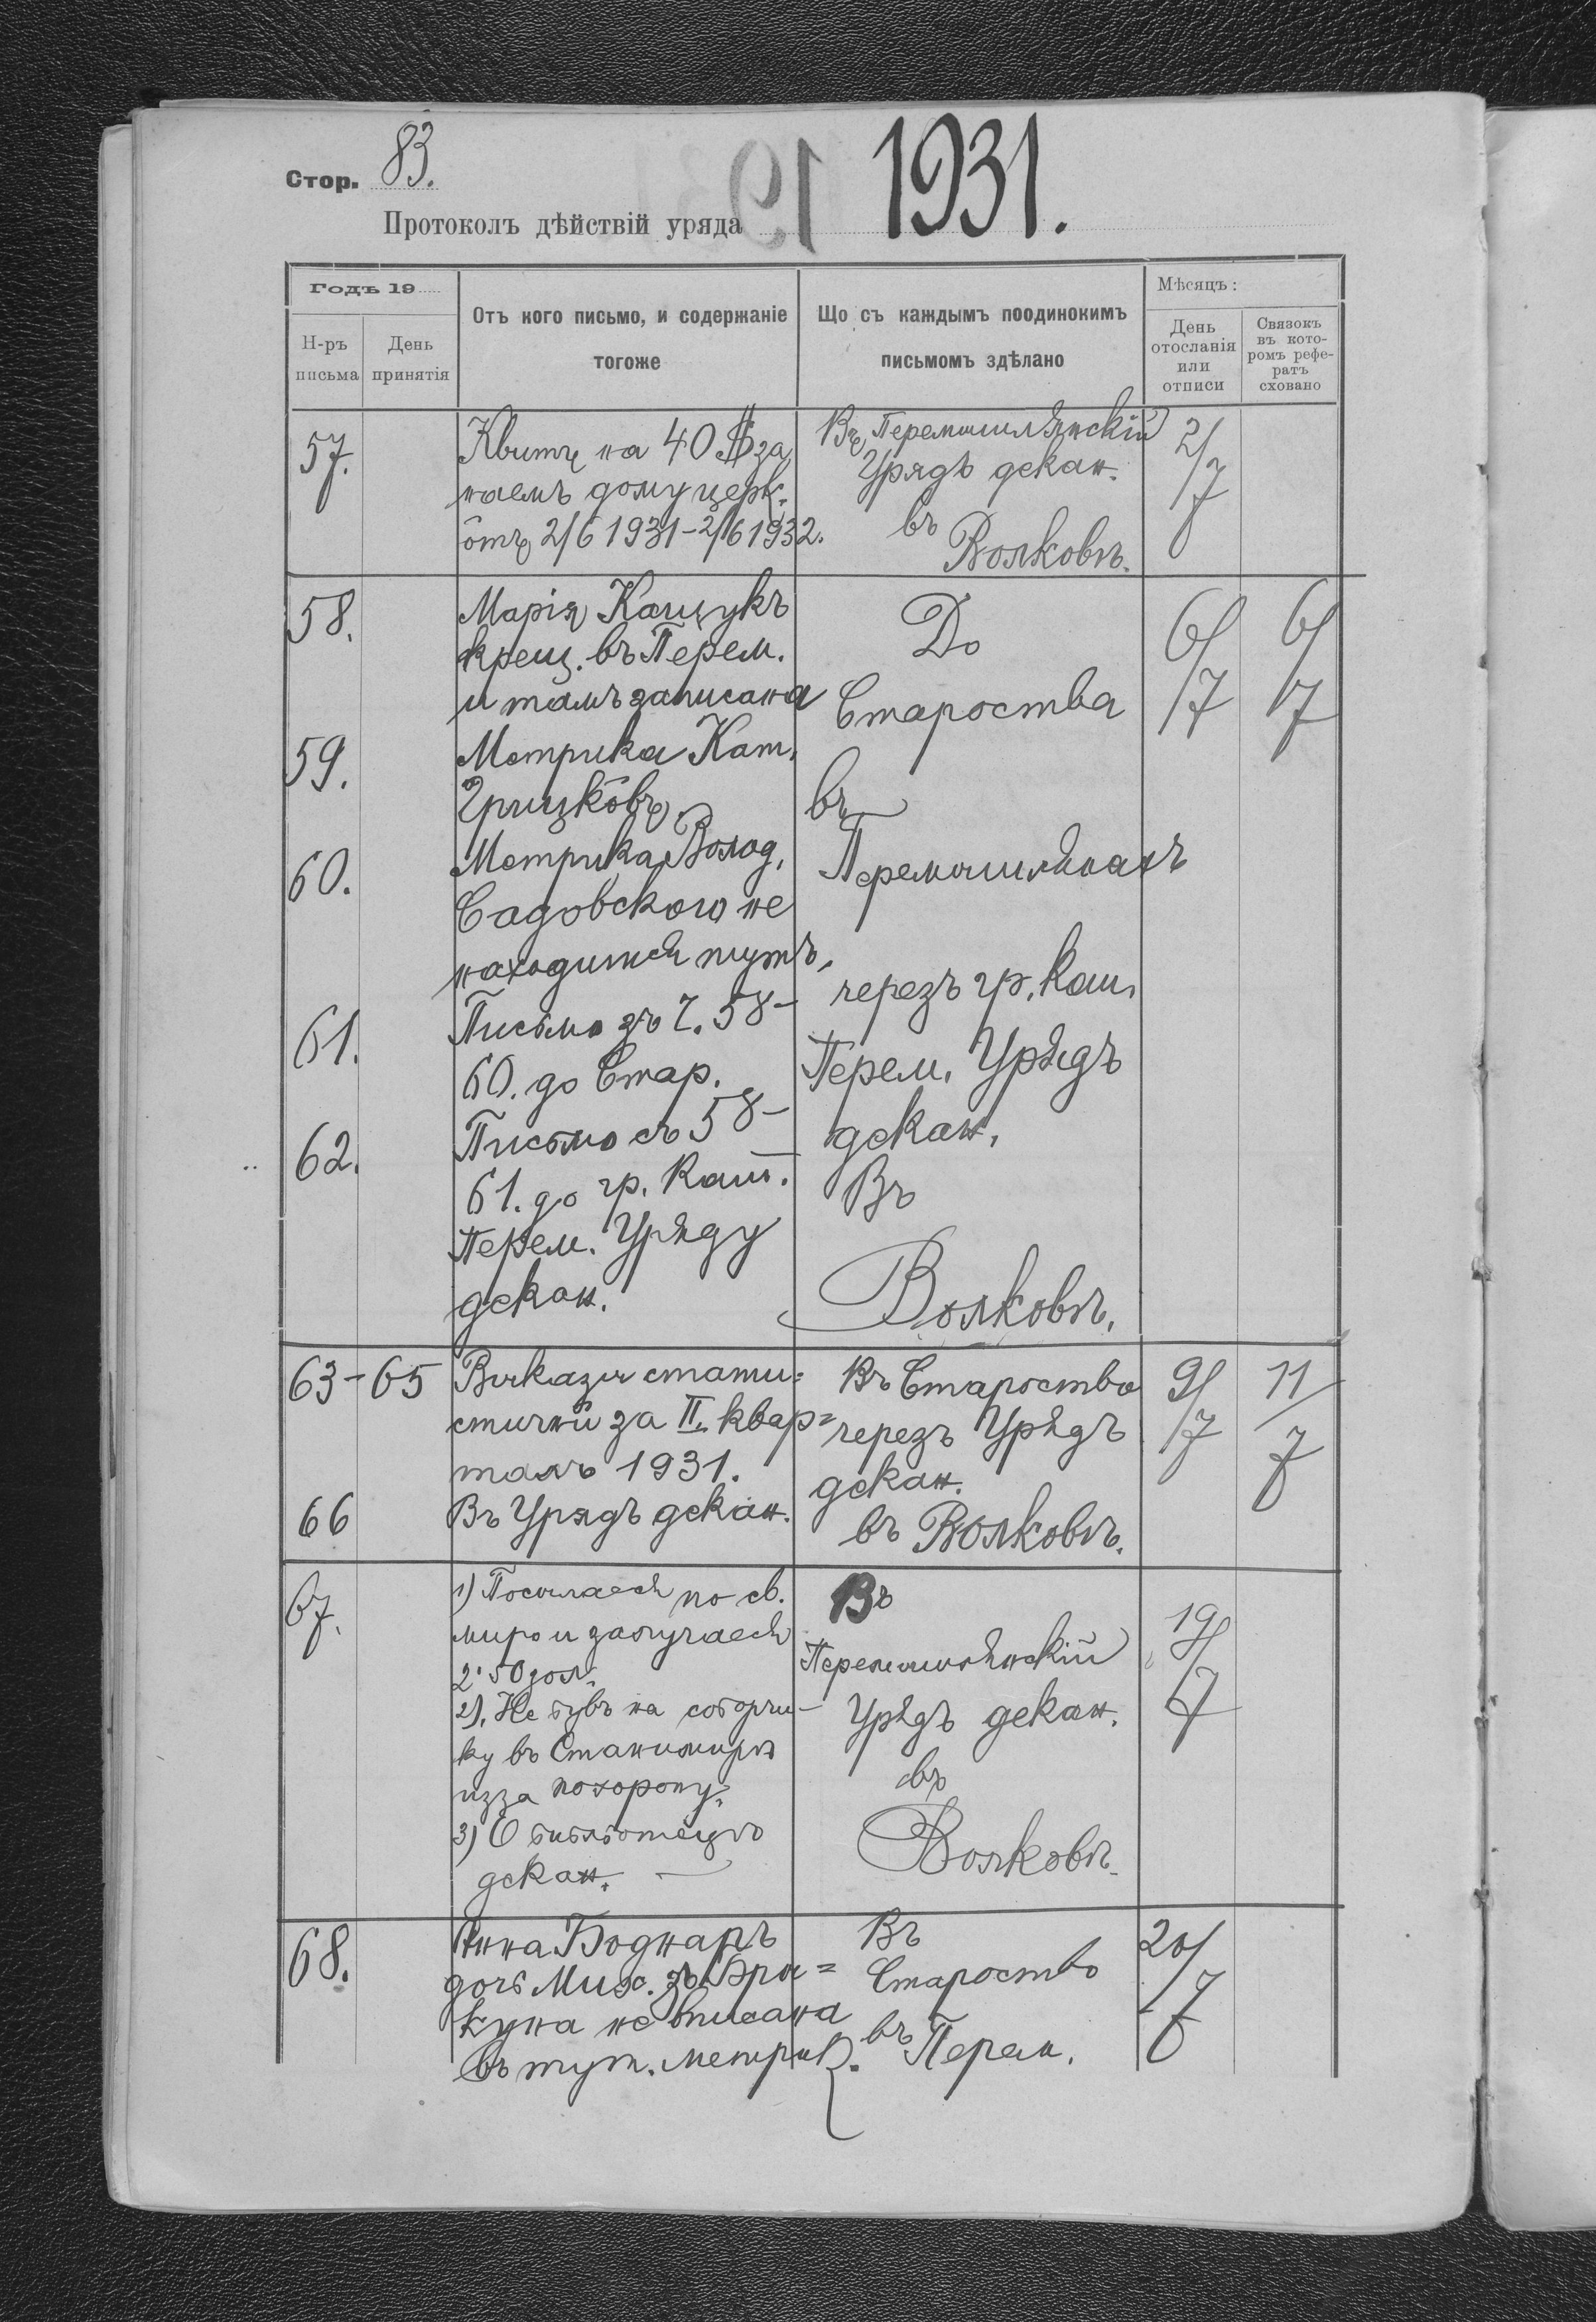 Стор. 83.
1931.
Протоколъ дѣйствій уряда
Годъ 19
Н-ръ письма
День принятія
Отъ кого письмо, и содержаніе
тогоже
Що съ каждымъ поодинокимъ
письмомъ здѣлано
Мѣсяцъ:
День
отосланія
или
отписи
Связокъ
въ кото-
ромъ рефе-
ратъ
сховано
57.
Квитъ на 40 $ за
наемъ дому церк.
ôтъ 2/6 1931-2/6 1932.
Въ Перемишлянскій
Урядъ декан.
въ
Волковѣ.
2/7
58.
Марія Кащукъ
крещ. въ Перем.
и тамъ записана
59.
Метрика Кат.
Грицкôвъ,
60.
Метрика Волод.
Садовского не
находится тутъ,
61.
Письмо зъ Ч. 58-
60. до Стар.
62.
Письмо съ 58-
61. до гр. кат.
Перем. Уряду
декан.
До
Староства
въ
Перемишлянахъ
черезъ гр. кат.
Перем. Урядъ
декан.
Въ
Волковѣ.
6/7
6/7
63-65
Викази стати=
стичнй за II. квар=
талъ 1931.
66
Въ Урядъ декан.
Въ Староство
черезъ Урядъ
декан.
въ Волковѣ.
9/7
11/7
67.
1) Посилаеся по св.
миро и залучаеся
2·50 зол.
2). Не бувъ на соборчи-
ку въ Станимирѣ
изза похорону.
3) О библіотецѣ
декан.
Въ
Перемишлянскій
Урядъ декан.
въ
Волковѣ.
19/7
68.
Анна Боднаръ
дочь Мих. зъ Бри=
куна не вписана
въ тут. метрик.
Въ
Староство
въ Перем.
20/7